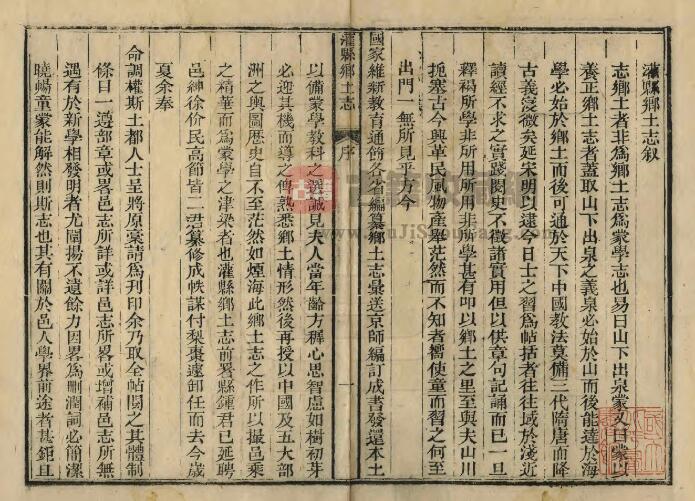 灌縣鄉土志叙
志鄉土者非爲鄉土志爲蒙學志也易曰山下出泉蒙又曰蒙以
養正鄉土志者蓋取山下出泉之義泉必始於山而後能達於海
學必始於鄉土而後可通於天下中國教法莫備三代隋唐而降
古義寖微矣延宋明以逮今日士之習爲帖括者往往域於淺近
讀經不求之實踐閱史不徵諸實用但以供章句記誦而已一旦
釋褐所學非所用所用非所學甚有叩以鄉土之里至與夫山川
扼塞古今興革民風物產舉茫然而不知者嚮使童而習之何至
出門一無所見乎方今
國家維新教育通飭各省編纂鄉土志彙送京師編訂成書發還本土
灌縣鄉土志 序 一
以備蒙學教科之選誠見夫人當年齡方穉心思智慮如樹初芽
必迎其機而導之俾熟悉鄉土情形然後再授以中國及五大部
洲之輿圖歷史自不至茫然如煙海此鄉土志之作所以撮邑乘
之精華而爲蒙學之津梁者也灌縣鄉土志前署縣鍾君已延聘
邑紳徐份民高節皆二君纂修成帙謀付梨棗遽卸任而去今歲
夏余奉
命調權斯土都人士呈將原稾請爲刊印余乃取全帖閱之其體制
條目一遵部章或畧邑志所詳或詳邑志所畧或增補邑志所無
遇有於新學相發明者尤闡揚不遺餘力因畧爲刪潤詞必簡潔
曉暢童蒙能解然則斯志也其有關於邑人學界前途者甚鉅且